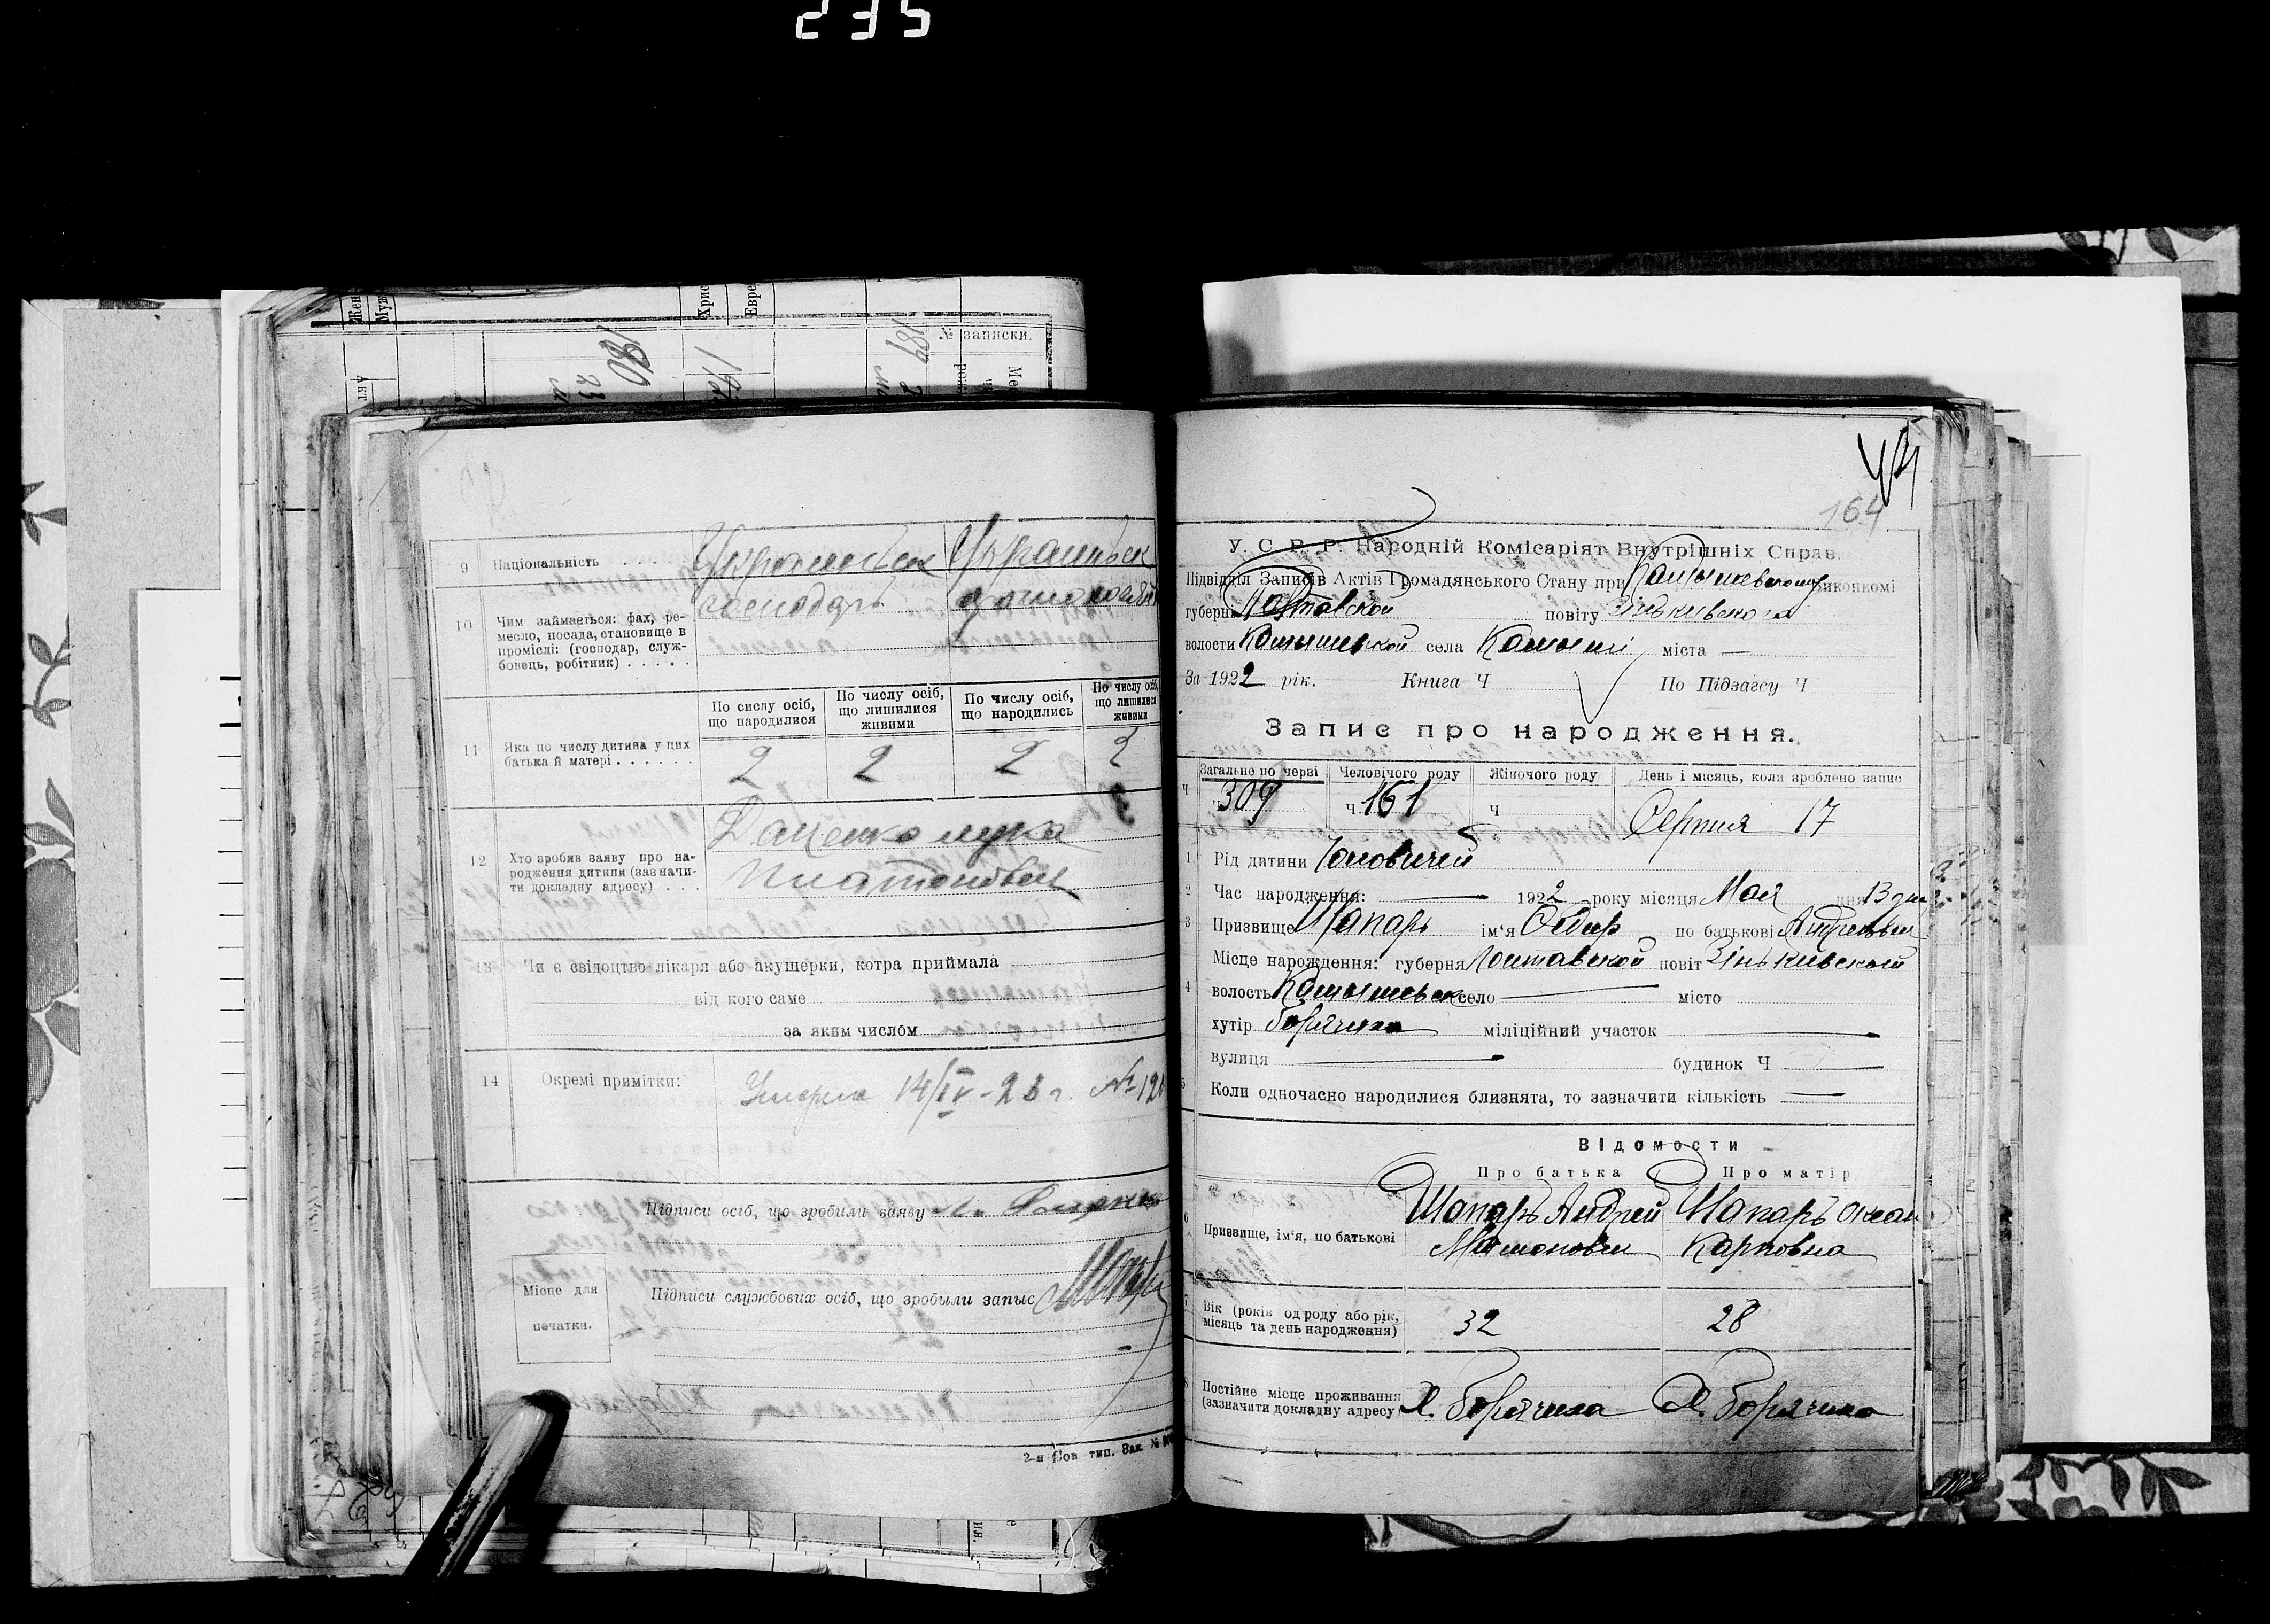 235
Жен
Муж
Хрис
Евре
№ записки.
180
189
9 Національність . . . . Украинськ Украинськ
10 Чим займається: фах, ре-
месло, посада, становище в
промислі: (господар, служ-
бовець, робітник) . . . . .
господарь
По сислу осіб, що народилися
По числу осіб, що лишилися живими
По числу осіб, що народились
По числу осіб, що лишилися живими
11 Яка по числу дитина у цих
батька й матері . . . . . .
2 2 2 2
12 Хто зробив заяву про на-
родження дитини (зазначи-
ти докладну адресу) . . .
Даценко Лука
Платонович
13 Чи є свідоцтво лікаря або акушерки, котра приймала
від кого саме
за яким числом
14 Окремі примітки:
Умерла 14/IV-23 г. № 121
Підписи осіб, що зробили заяву
Місце для
печатки.
Підписи службових осіб, що зробыли запыс
2-я Сов тип. Зак. №
164
У. С. Р. Р. Народній Комісаріят Внутрішніх Справ.
Підвідділ Записів Актів Громадянського Стану при Камышевском виконкомі
губерні Полтавской повіту Зіньківского
волости Камышевской села Камыші міста —
За 1922 рік. Книга Ч По Підзагсу Ч
Запис про народження.
Загальне по черзі Человічого роду Жіночого роду День і місяць, коли зроблено запис
Ч 309 Ч 161 Ч Серпня 17
1 Рід дитини Чоловичей
2 Час народження: — 1922 року місяця Мая дня 13 дня
3 Призвище Шапарь ім'я Федир по батькові Андреевич
Місце нарождення: губерня Полтавской повіт Зіньківской
4 волость Камышевск село — місто
хутір Борячина міліційний участок —
вулиця — будинок Ч —
5 Коли одночасно народилися близнята, то зазначити кількість —
Відомости
Про батька Про матір
Шапарь Андрей Шапарь Оксан
6 Призвище, ім'я, по батькові
Карповна
7 Вік (років од роду або рік,
місяць та день народження)
32 28
8 Постійне місце проживання
(зазначити докладну адресу)
Х. Борячина Х. Борячина